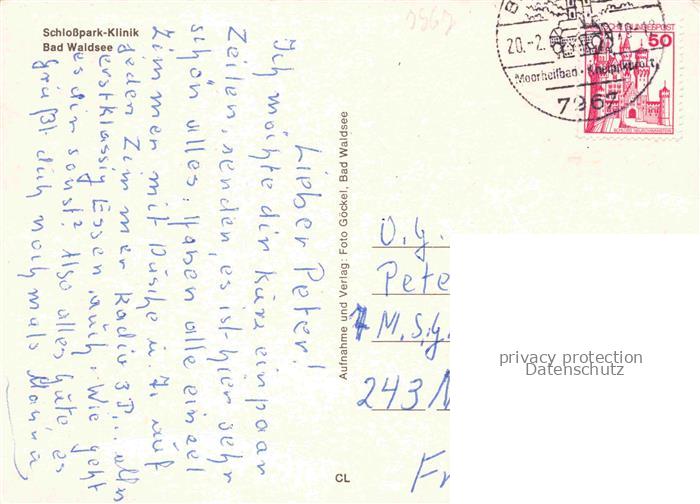 Schloßpark-Klinik
Bad Waldsee
Lieber Peter!
Ich möchte dir kurz ein paar
Zeilen senden, es ist hier sehr
schön alles. Haben alle einzel
Zimmer mit Dusche u.
jeden Zimmer Radio
erstklassig Essen auch. Wie geht
es dir sonst? Also alles Gute es
grüßt dich nochmals
Aufnahme und Verlag: Foto Göckel, Bad Waldsee
CL
20.-2.
Moorheilbad · Kneippkurort
7967
50
O.G.
Pete
M.S.G.
243
privacy protection
Datenschutz